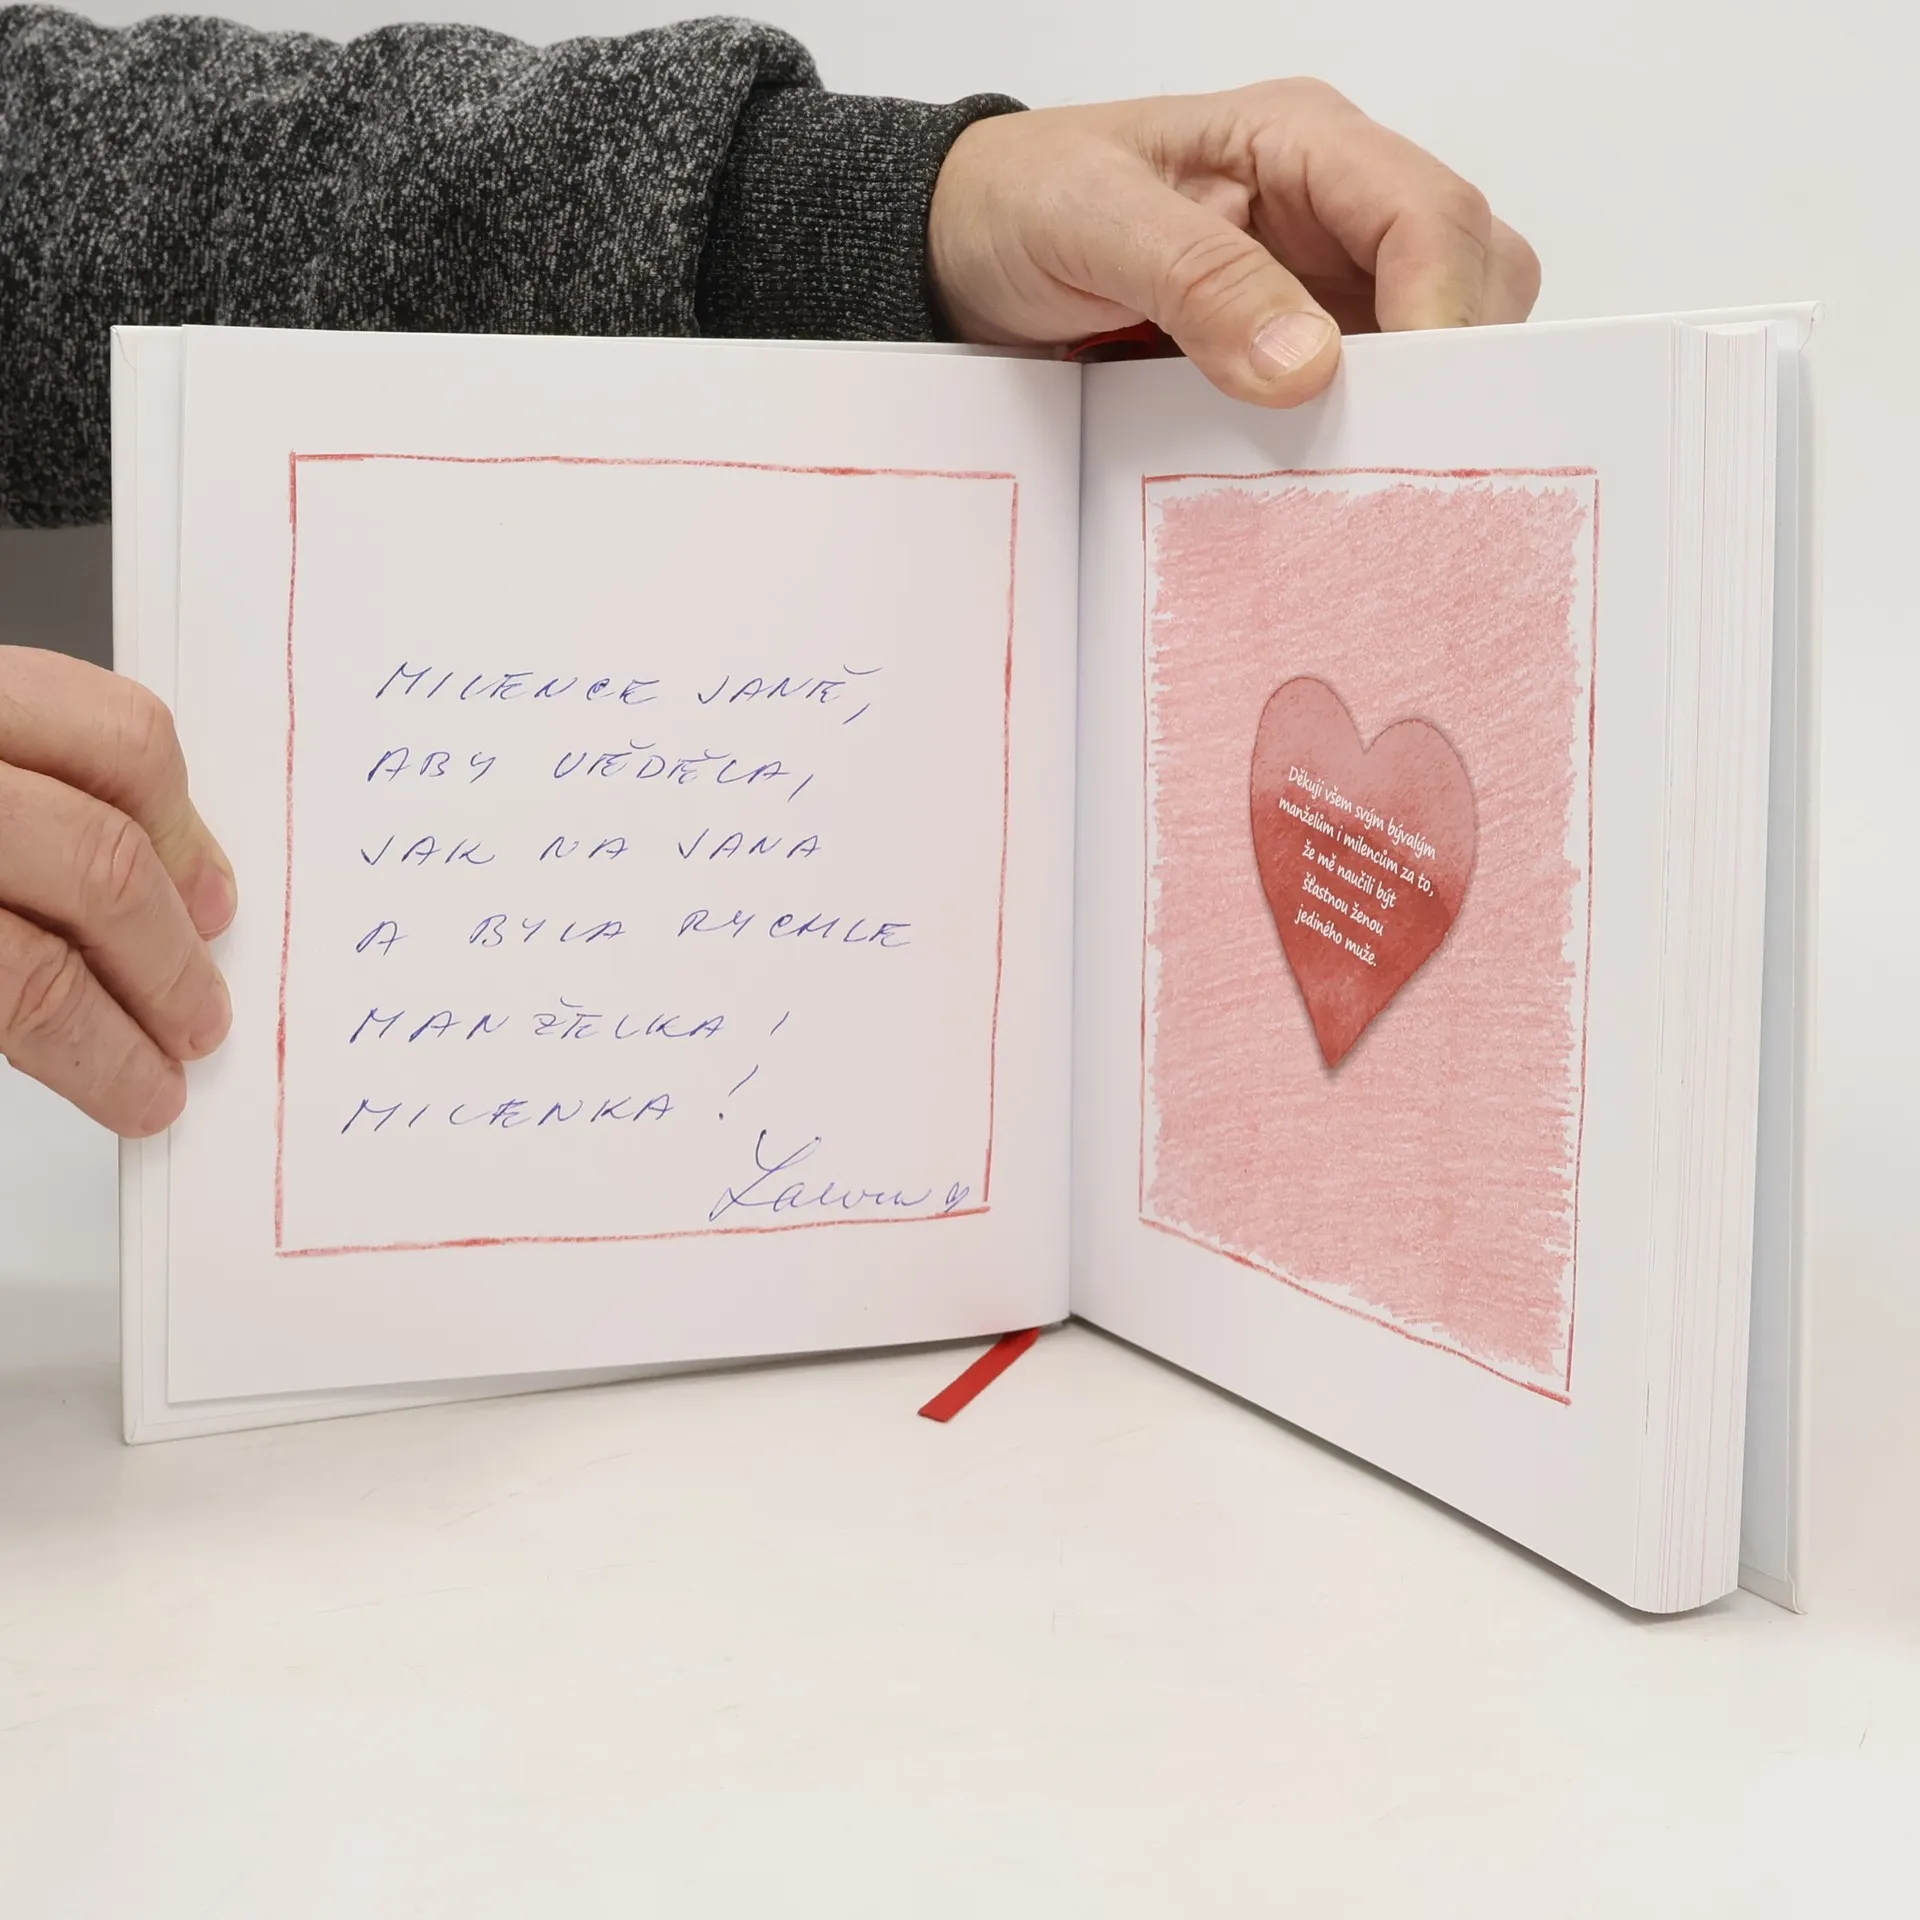 MILENCE JANĚ,
ABY VĚDĚLA,
JAK NA JANA
A BYLA RYCHLE
MANŽELKA I
MILENKA!
Děkuji všem svým bývalým
manželům i milencům za to,
že mě naučili být
šťastnou ženou
jediného muže.